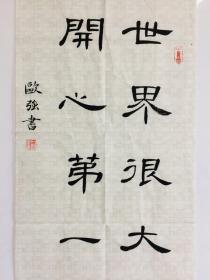 世界很大
開心第一
歐強書